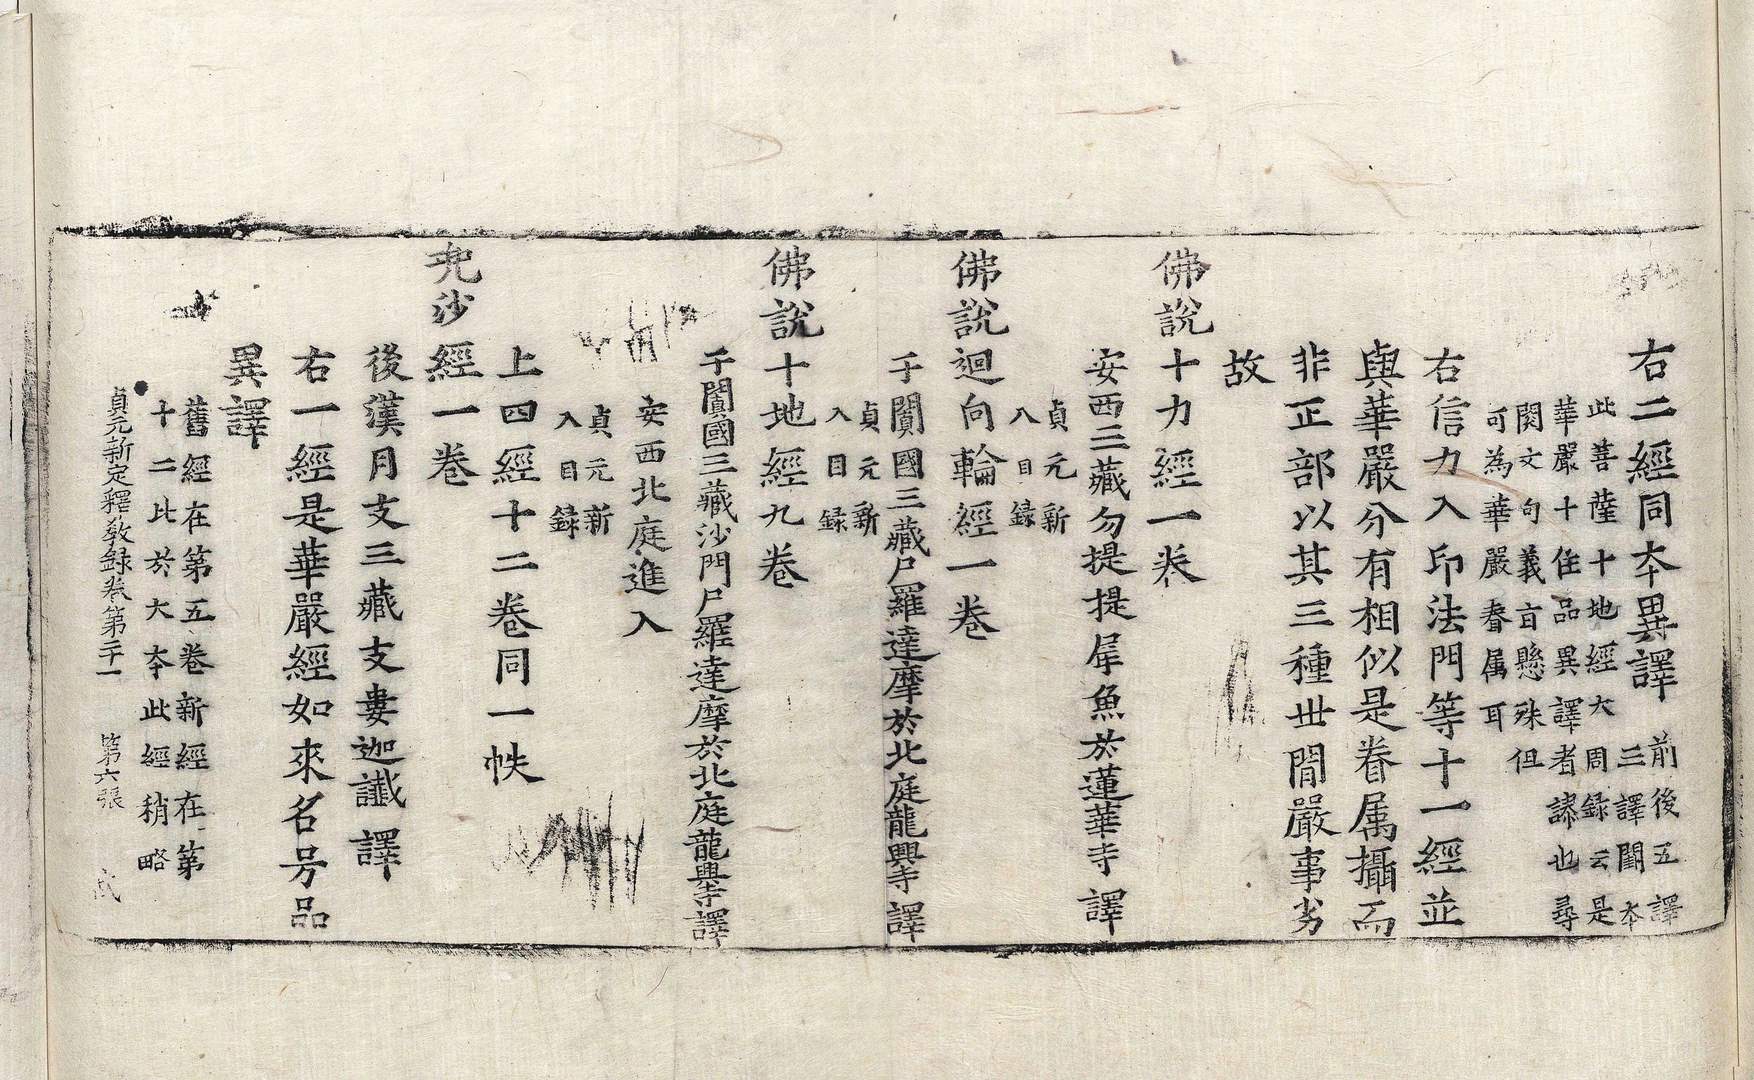 右二經同本異譯前後五譯三譯闕本
此菩薩十地經大周録云是
華嚴十住品異譯者謬也尋
閱文句義㫖懸殊但
可為華嚴眷属耳
右信力入印法門等十一經並
與華嚴分有相似是眷属攝而
非正部以其三種丗閒嚴事劣
故
佛說十力經一卷
安西三藏勿提提犀魚於蓮華寺譯
佛說迴向輪經一卷貞元新入目録
于闐國三藏尸羅達摩於北庭龍興寺譯
佛說十地經九卷貞元新入目録
于闐國三藏沙門尸羅達摩於北庭龍興寺譯
安西北庭進入
貞元新入目録
上四經十二卷同一帙
兠沙經一卷
後漢月支三藏支婁迦讖譯
右一經是華嚴經如來名号品
異譯
舊經在第五卷新經在第
十二比於大本此經稍略
貞元新定釋教録卷第二十一 第六張